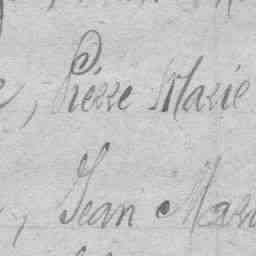 , Pierre Marie
, Jean Mari